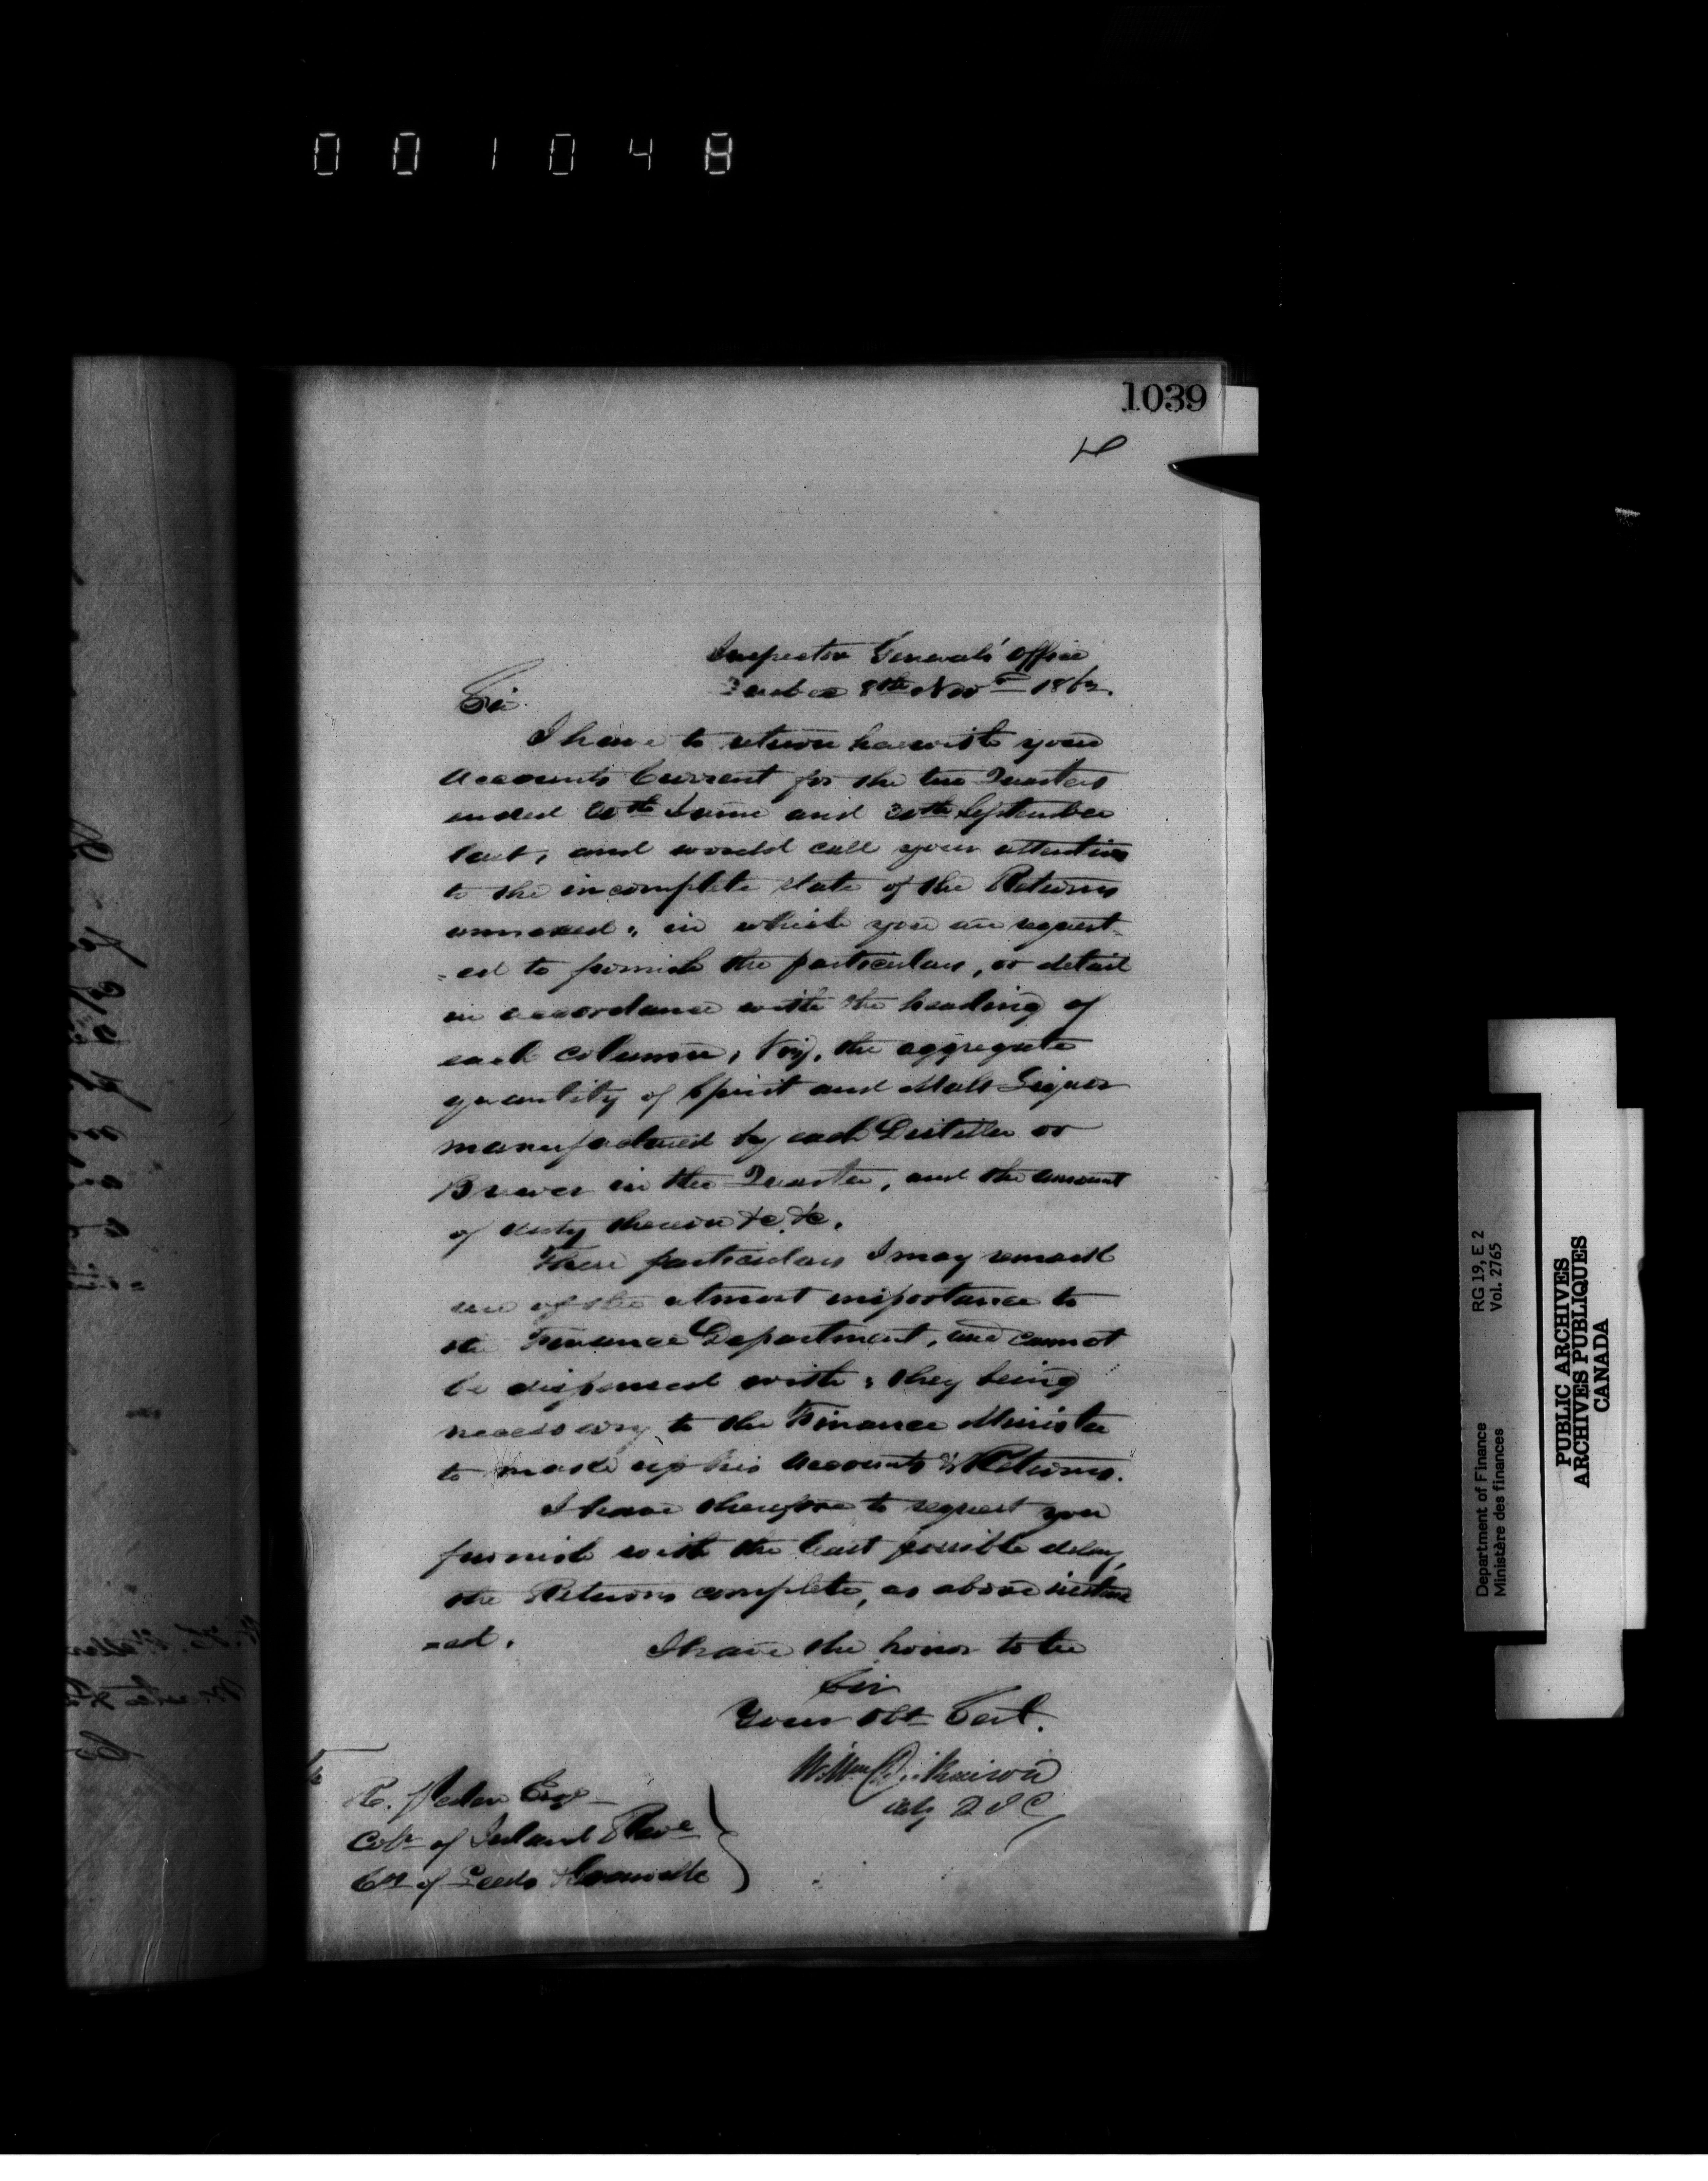 001048
1039
Inspector Generals' Office
Quebec 8th Novr 1862.
Sir.
I have to return herewith your
Accounts Current for the two Quarters
ended 30th June and 30th September
last, and would call your attention
to the incomplete state of the Returns
annexed, in which you are request-
-ed to furnish the particulars, or detail
in accordance with the heading of
each column, viz, the aggregate
quantity of Spirit and Malt Liquor
manufactured by each Distiller or
Brewer in the Quarter, and the amount
of duty thereon &c. &c.
These particulars I may remark
are of the utmost importance to
the Finance Department, and cannot
be dispensed with; they being
necessary to the Finance Minister
to make up his Accounts & Returns.
I have therefore to request you
furnish with the least possible delay,
the Returns complete, as above
=ed.
I have the honor to be
Sir
Your Obt Sert.
Wm Dickinson
Actg D I G
R. Peden Esqr
Colr of Inland Reve
Cos of Leeds & Grenville
Department of Finance RG 19, E 2
Ministère des finances Vol. 2765
PUBLIC ARCHIVES
ARCHIVES PUBLIQUES
CANADA